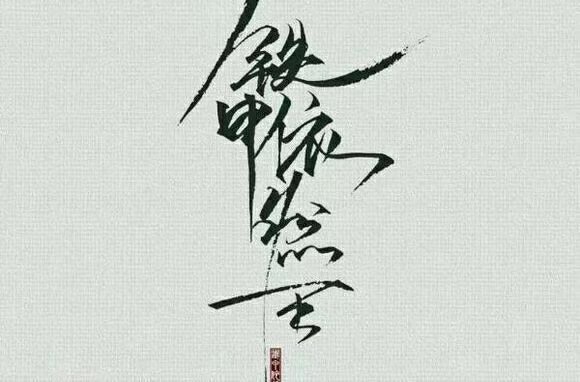 铁甲依然在